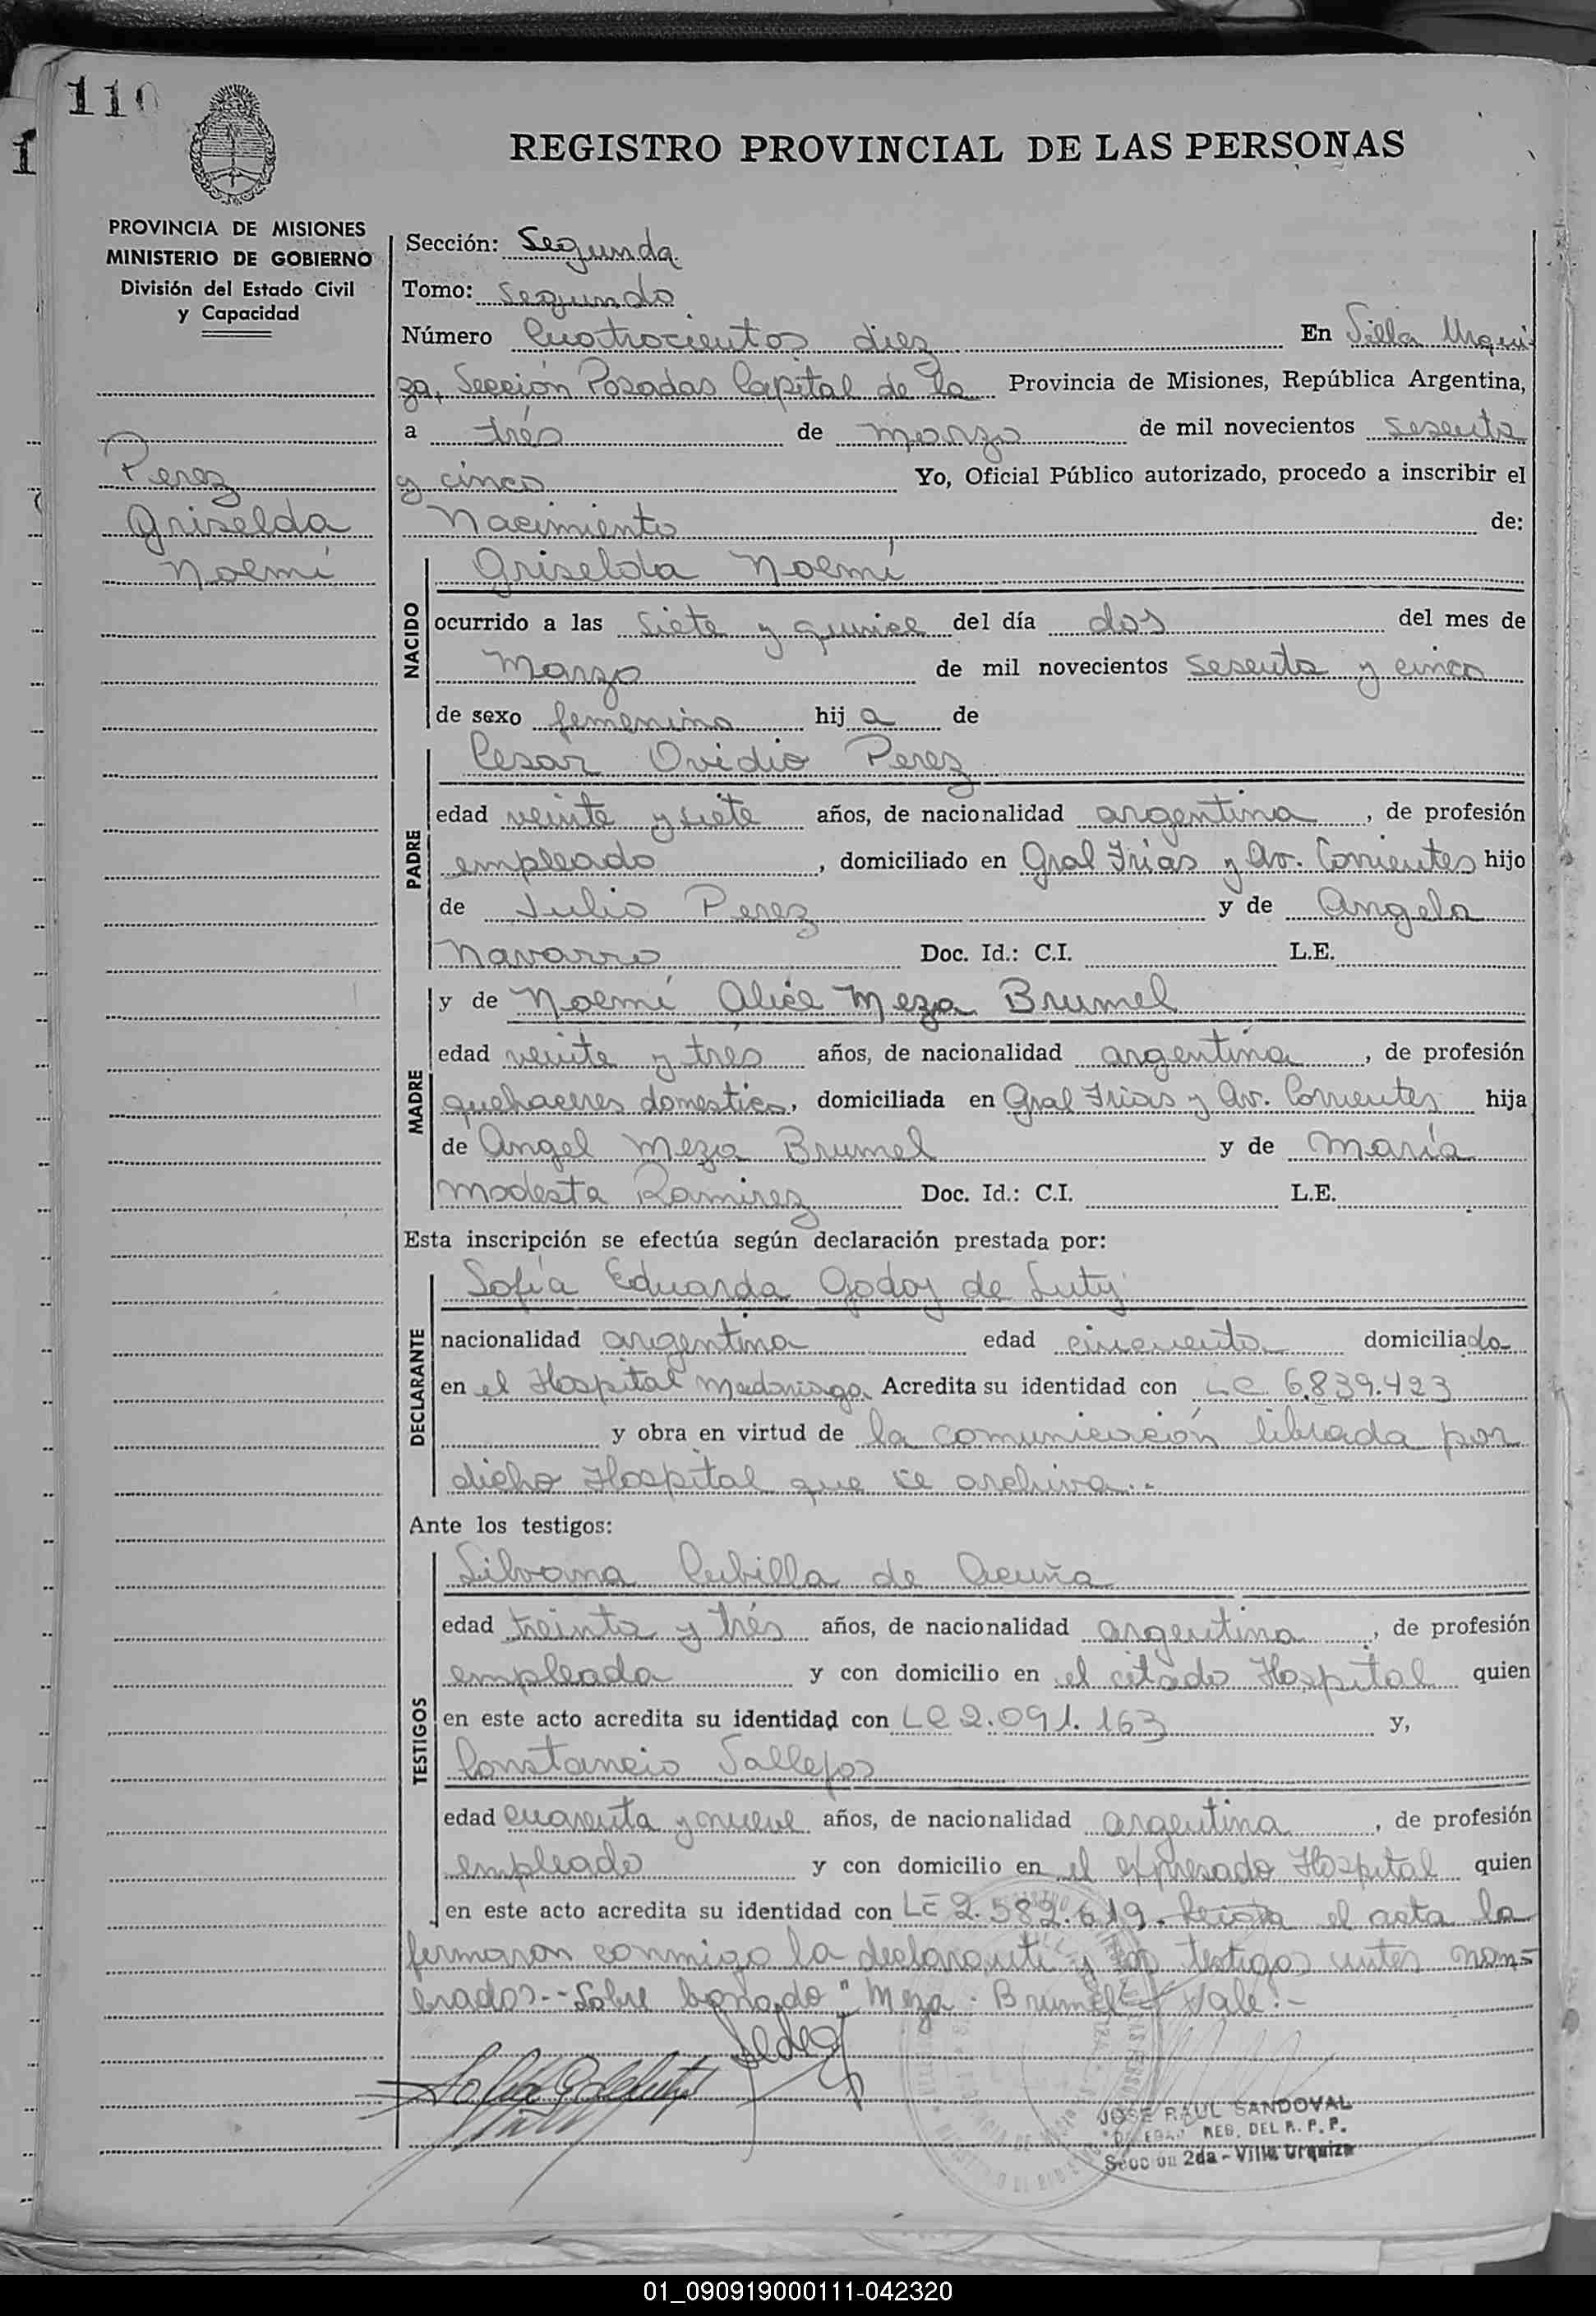 110
1
REGISTRO PROVINCIAL DE LAS PERSONAS
PROVINCIA DE MISIONES
MINISTERIO DE GOBIERNO
División del Estado Civil
y Capacidad
Perez
Griselda
Noemí
Sección: Segunda
Tomo: Segundo
Número Cuatrocientos diez En Villa Urqui-
za, Sección Posadas Capital de la Provincia de Misiones, República Argentina,
a trés de marzo de mil novecientos sesenta
y cinco Yo, Oficial Público autorizado, procedo a inscribir el
Nacimiento de:
NACIDO
Griselda Noemí
ocurrido a las siete y quince del día dos del mes de
Marzo de mil novecientos sesenta y cinco
de sexo femenino hij a de
PADRE
Cesar Ovidio Perez
edad veinte y siete años, de nacionalidad argentina, de profesión
empleado, domiciliado en Gral Frias y Av. Corrientes hijo
de Julio Perez y de Angela
Navarro Doc. Id.: C.I. L.E.
MADRE
y de Noemí Alice Meza Brumel
edad veinte y trés años, de nacionalidad argentina, de profesión
quehaceres domestico, domiciliada en Gral Frias y Av. Corrientes hija
de Angel Meza Brumel y de María
Modesta Ramirez Doc. Id.: C.I. L.E.
Esta inscripción se efectúa según declaración prestada por:
DECLARANTE
Sofía Eduarda Godoy de Luty
nacionalidad argentina edad cincuenta domiciliada
en el Hospital Madariaga Acredita su identidad con LC. 6.839.423
y obra en virtud de la comunicación librada por
dicho Hospital que se archiva..
Ante los testigos:
TESTIGOS
Silvana Cubilla de Acuña
edad treinta y trés años, de nacionalidad argentina, de profesión
empleada y con domicilio en el citado Hospital quien
en este acto acredita su identidad con LC 2.091.163 y,
Constancio Vallejos
edad cuarenta y nueve años, de nacionalidad argentina, de profesión
empleado y con domicilio en el expresado Hospital quien
en este acto acredita su identidad con LE 2.582.619. el acta la
firmaron conmigo la declarante y los testigos antes nom=
brados.- Sobre borrado " Meza - Brumel" Vale.-
JOSE RAUL SANDOVAL
REG. DEL R. P. P.
Sección 2da - Villa Urquiza
01_090919000111-042320